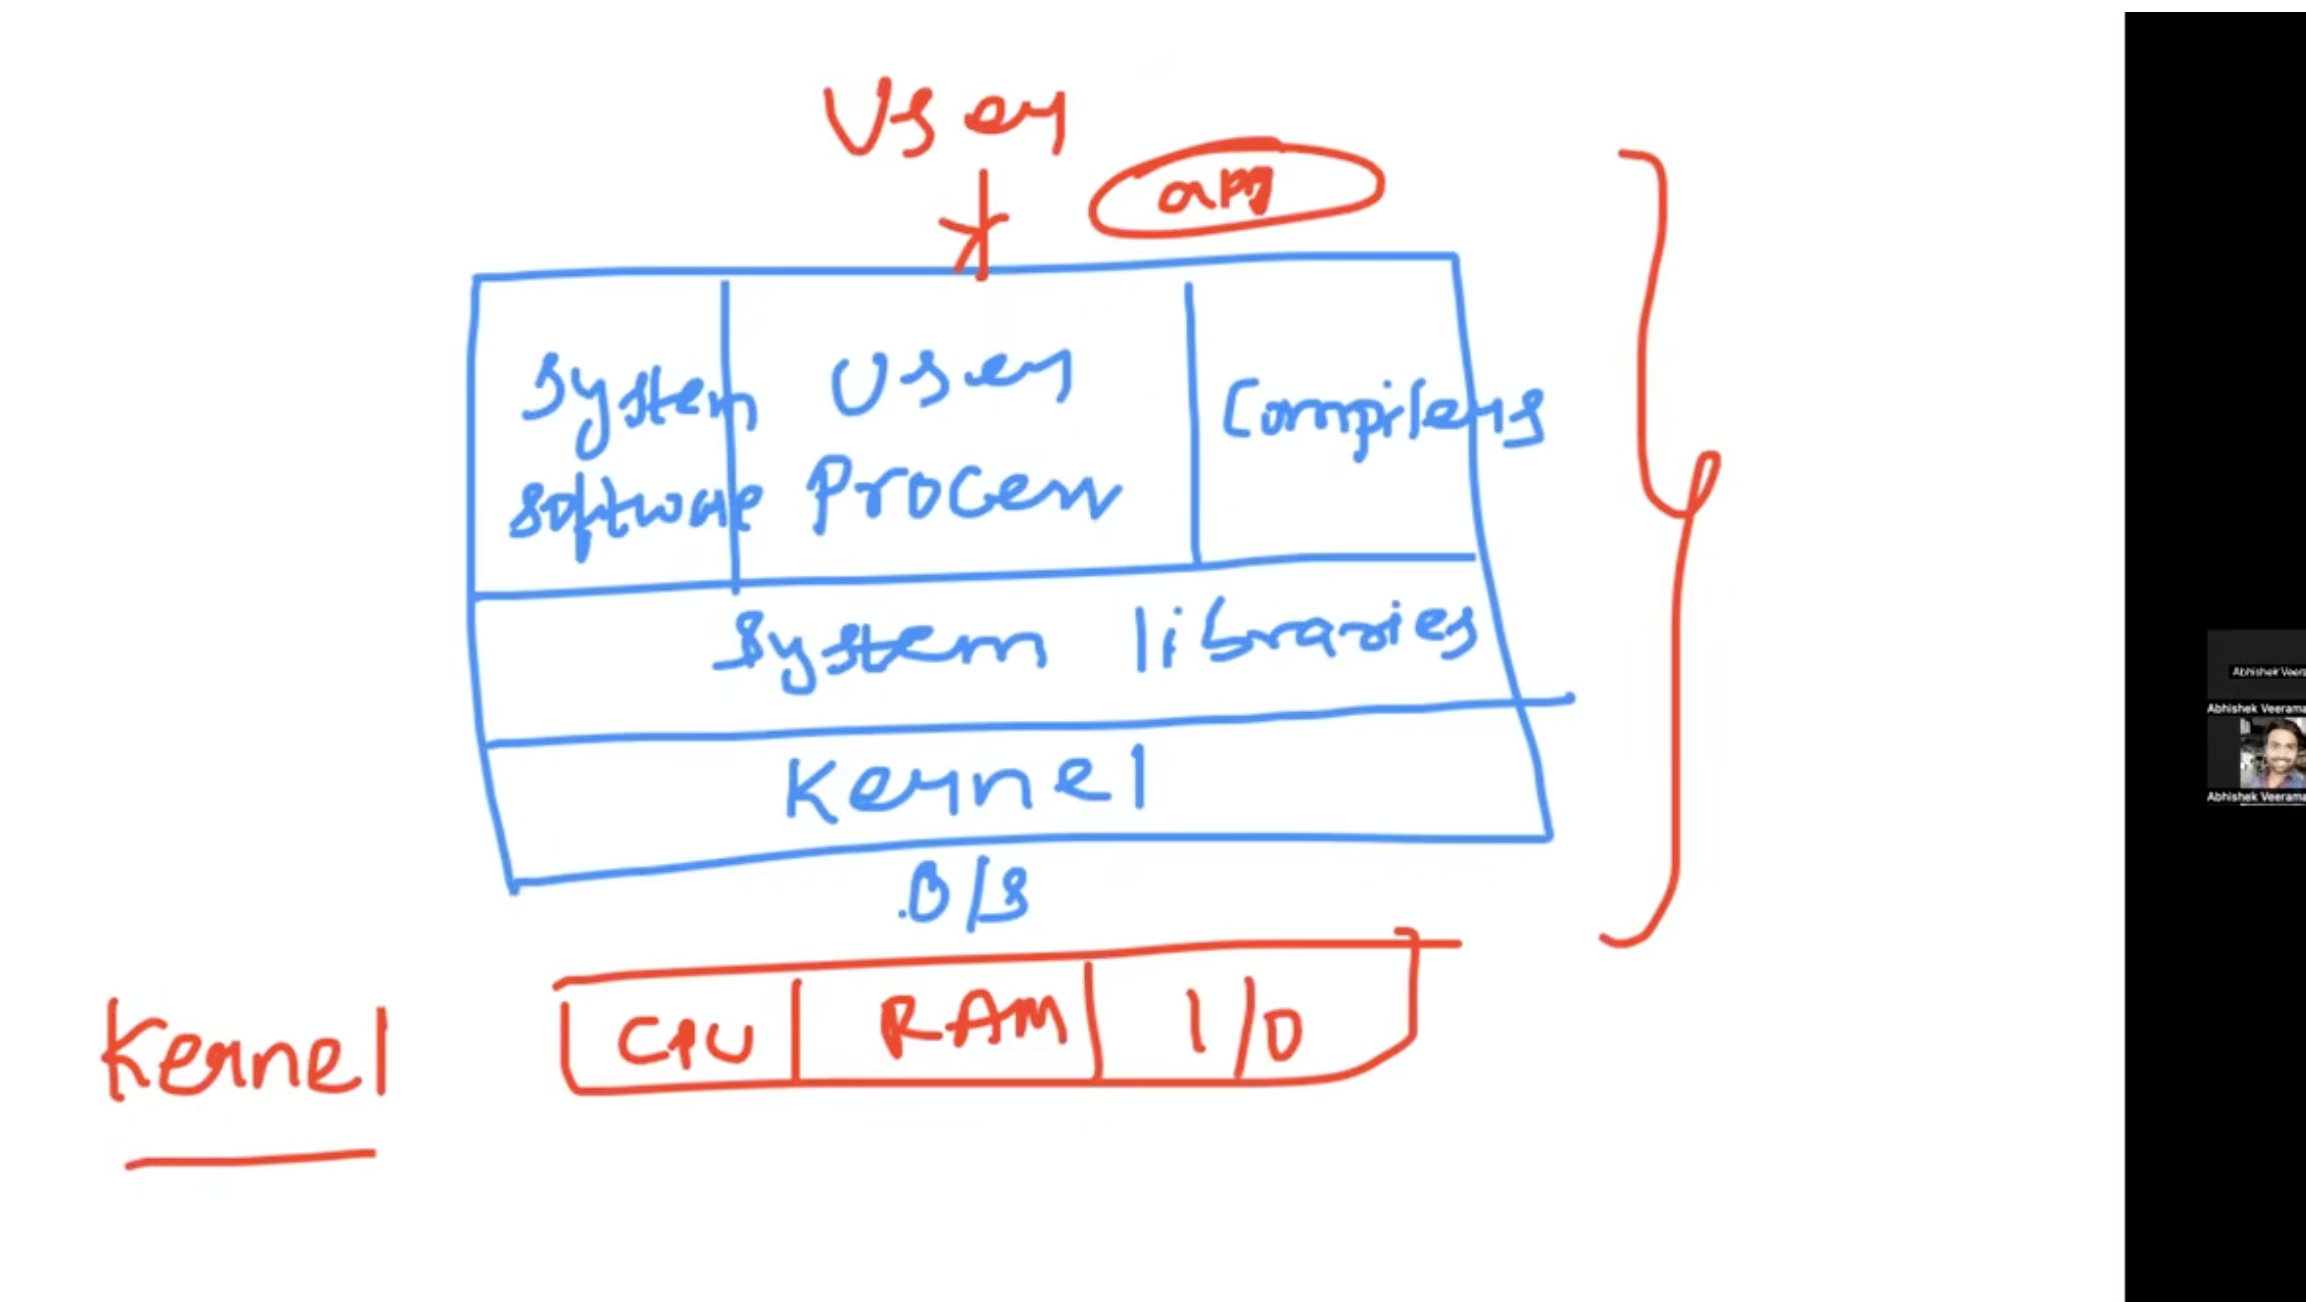 User
app
System
Software
User
Process
Compilers
System libraries
Kernel
O/S
Kernel
CPU | RAM | I/O
Abhishek Veera
Abhishek Veerama
Abhishek Veerama